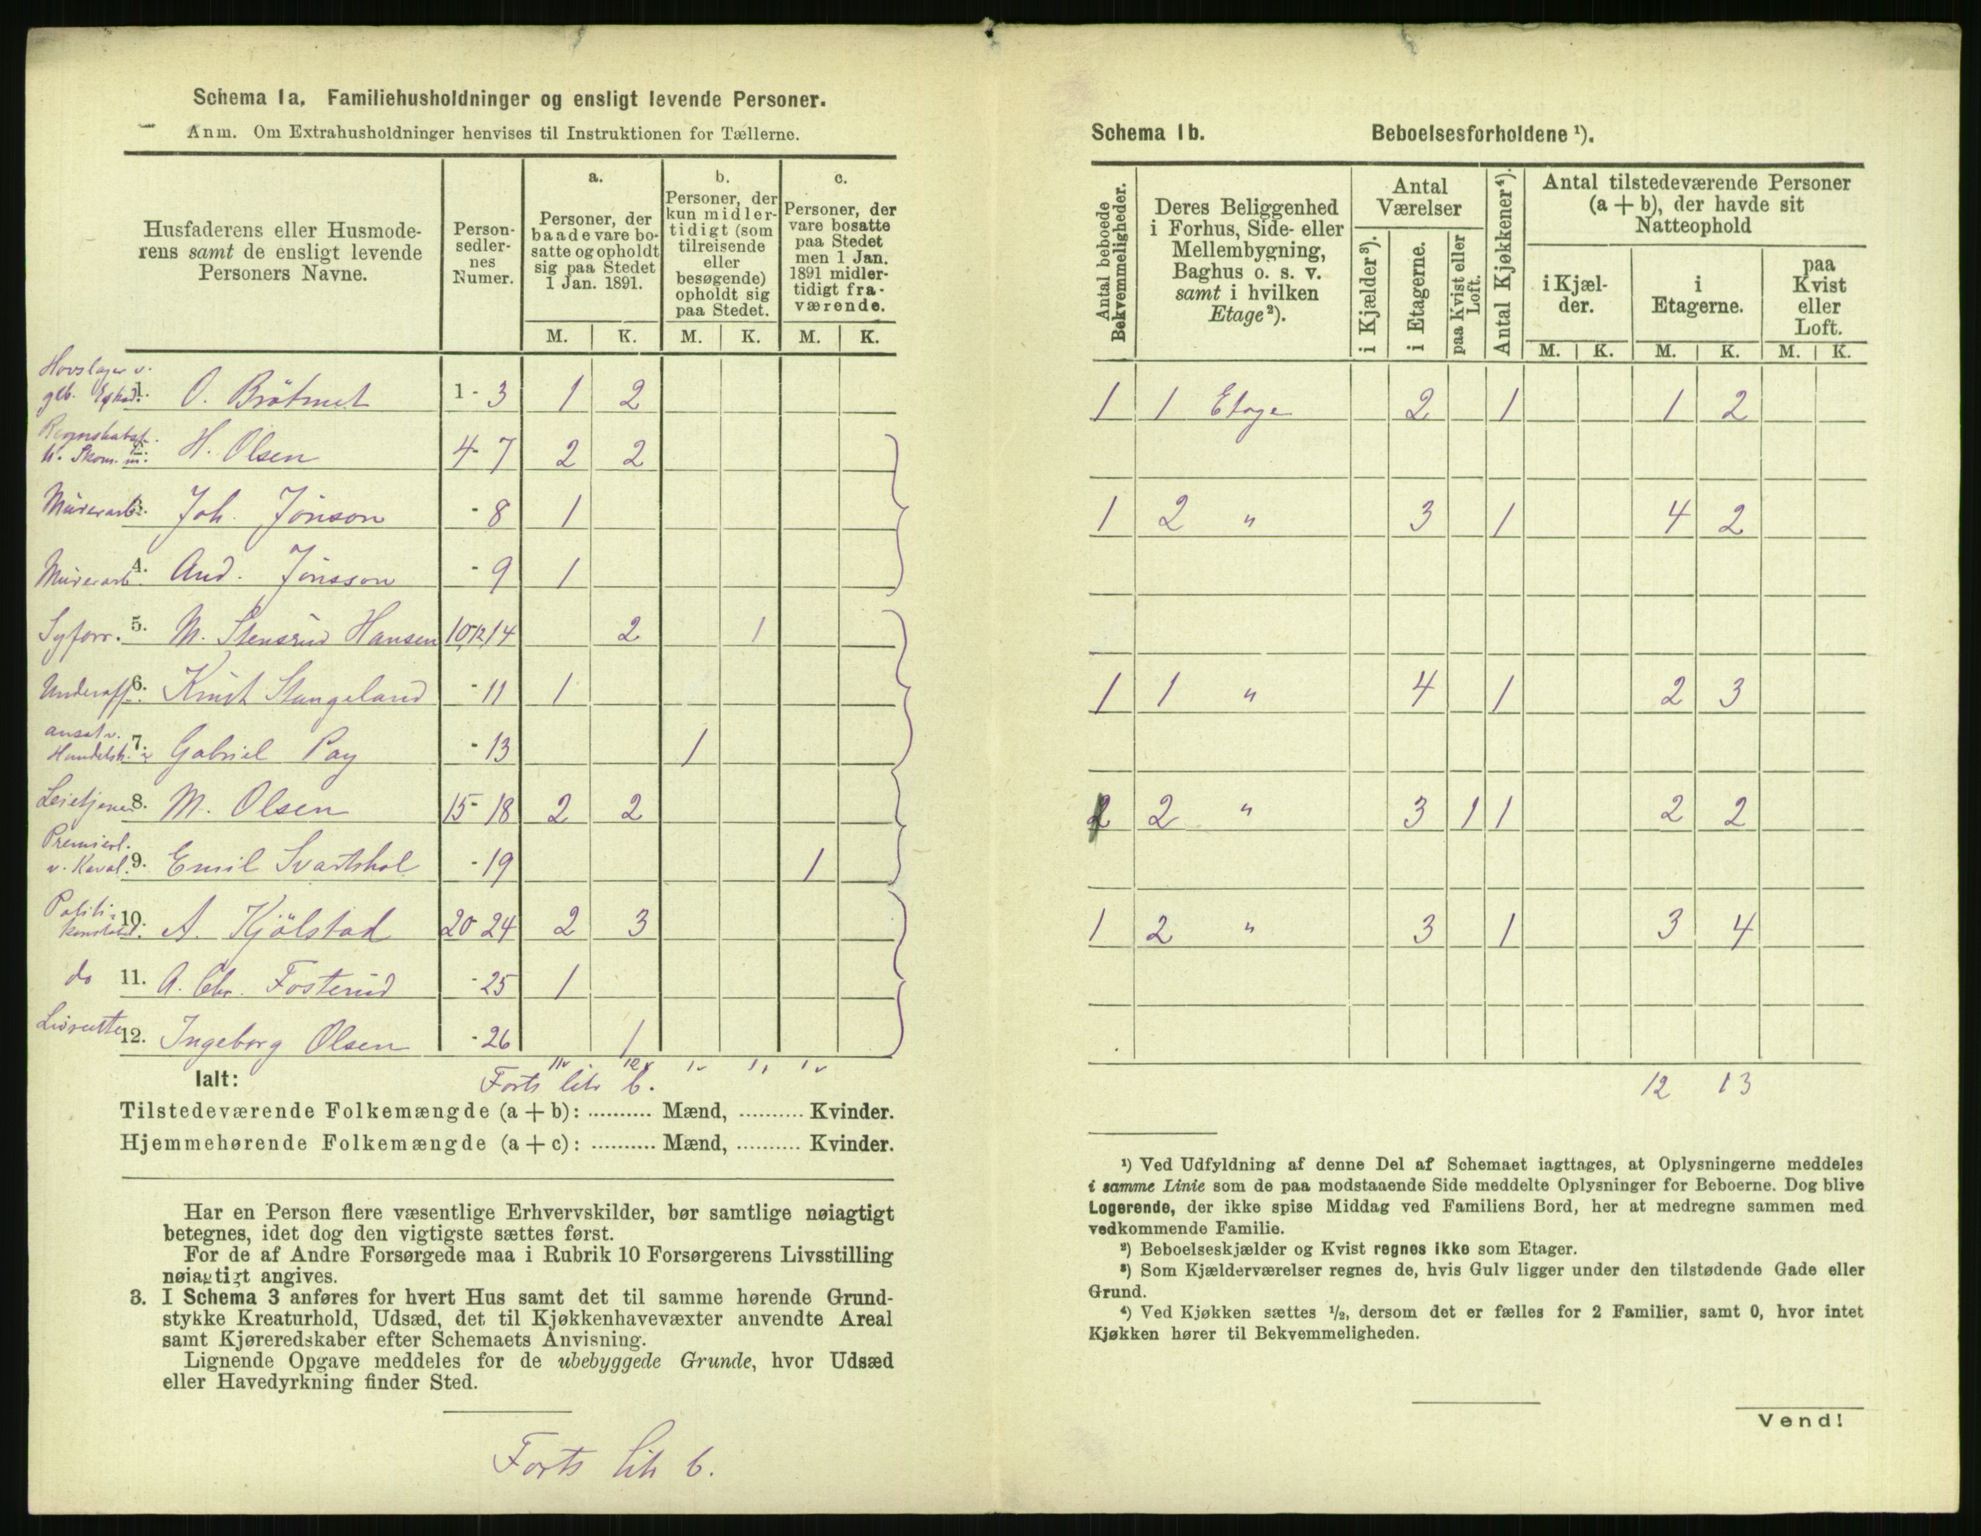 Schema 1a. Familiehusholdninger og ensligt levende Personer.
Anm. Om Extrahusholdninger henvises til Instruktionen for Tællerne.
Husfaderens eller Husmode-
rens samt de ensligt levende
Personers Navne.
Person-
sedler-
nes
Numer.
a.
Personer, der
baade vare bo-
satte og opholdt
sig paa Stedet
1 Jan. 1891.
b.
Personer, der
kun midler-
tidigt (som
tilreisende
eller
besøgende)
opholdt sig
paa Stedet.
c.
Personer, der
vare bosatte
paa Stedet
men 1 Jan.
1891 midler-
tidigt fra-
værende.
M. K. M. K. M. K.
Hovslager v.
1. O. Bråtnut 1-3 1 2
H. Olsen 4-7 2 2
Murerarb. Joh. Jonson -8 1
Murerarb. 4. And. Jonsson -9 1
Syforr. 5. M. Stensrud Hansen 10,12,14 2 1
Underoff. 6. Knut Stangeland -11 1
ansat v.
Handelsk. 7. Gabriel Pay -13 1
Leietjener 8. M. Olsen 15-18 2 2
Premierl.
v. Kaval. 9. Emil Svartshol -19 1
Politi-
konstabel 10. A. Kjölstad 20-24 2 3
do 11. A. Chr. Fosterud -25 1
12. Ingeborg Olsen -26 1
11 12 1 1 1
Ialt: Forts litr b.
Tilstedeværende Folkemængde (a + b): .......... Mænd, .......... Kvinder.
Hjemmehørende Folkemængde (a + c): .......... Mænd, .......... Kvinder.
Har en Person flere væsentlige Erhvervskilder, bør samtlige nøiagtigt
betegnes, idet dog den vigtigste sættes først.
For de af Andre Forsørgede maa i Rubrik 10 Forsørgerens Livsstilling
nøiagtigt angives.
3. I Schema 3 anføres for hvert Hus samt det til samme hørende Grund-
stykke Kreaturhold, Udsæd, det til Kjøkkenhavevæxter anvendte Areal
samt Kjøreredskaber efter Schemaets Anvisning.
Lignende Opgave meddeles for de ubebyggede Grunde, hvor Udsæd
eller Havedyrkning finder Sted.
Forts litr b.
Schema 1b. Beboelsesforholdene ¹).
Antal beboede
Bekvemmeligheder.
Deres Beliggenhed
i Forhus, Side- eller
Mellembygning,
Baghus o. s. v.
samt i hvilken
Etage²).
Antal
Værelser
i Kjælder³).
i Etagerne.
paa Kvist eller
Loft.
Antal Kjøkkener⁴).
Antal tilstedeværende Personer
(a + b), der havde sit
Natteophold
i Kjæl-
der.
i
Etagerne.
paa
Kvist
eller
Loft.
M. K. M. K. M. K.
1 1 Etage 2 1 1 2
1 2 " 3 1 4 2
1 1 " 4 1 2 3
2 " 3 1 1 2 2
1 2 " 3 1 3 4
12 13
¹) Ved Udfyldning af denne Del af Schemaet iagttages, at Oplysningerne meddeles
i samme Linie som de paa modstaaende Side meddelte Oplysninger for Beboerne. Dog blive
Logerende, der ikke spise Middag ved Familiens Bord, her at medregne sammen med
vedkommende Familie.
²) Beboelseskjælder og Kvist regnes ikke som Etager.
³) Som Kjælderværelser regnes de, hvis Gulv ligger under den tilstødende Gade eller
Grund.
⁴) Ved Kjøkken sættes ½, dersom det er fælles for 2 Familier, samt 0, hvor intet
Kjøkken hører til Bekvemmeligheden.
Vend!